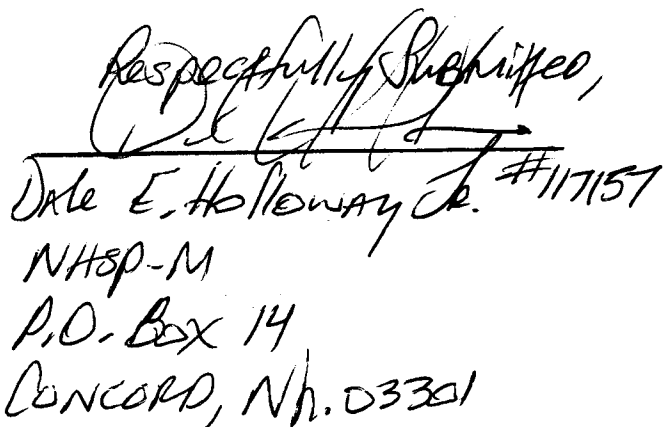 Respectfully Submitted,
Dale E. Holloway Jr. #117157
NHSP-M
P.O. Box 14
CONCORD, Nh. 03301